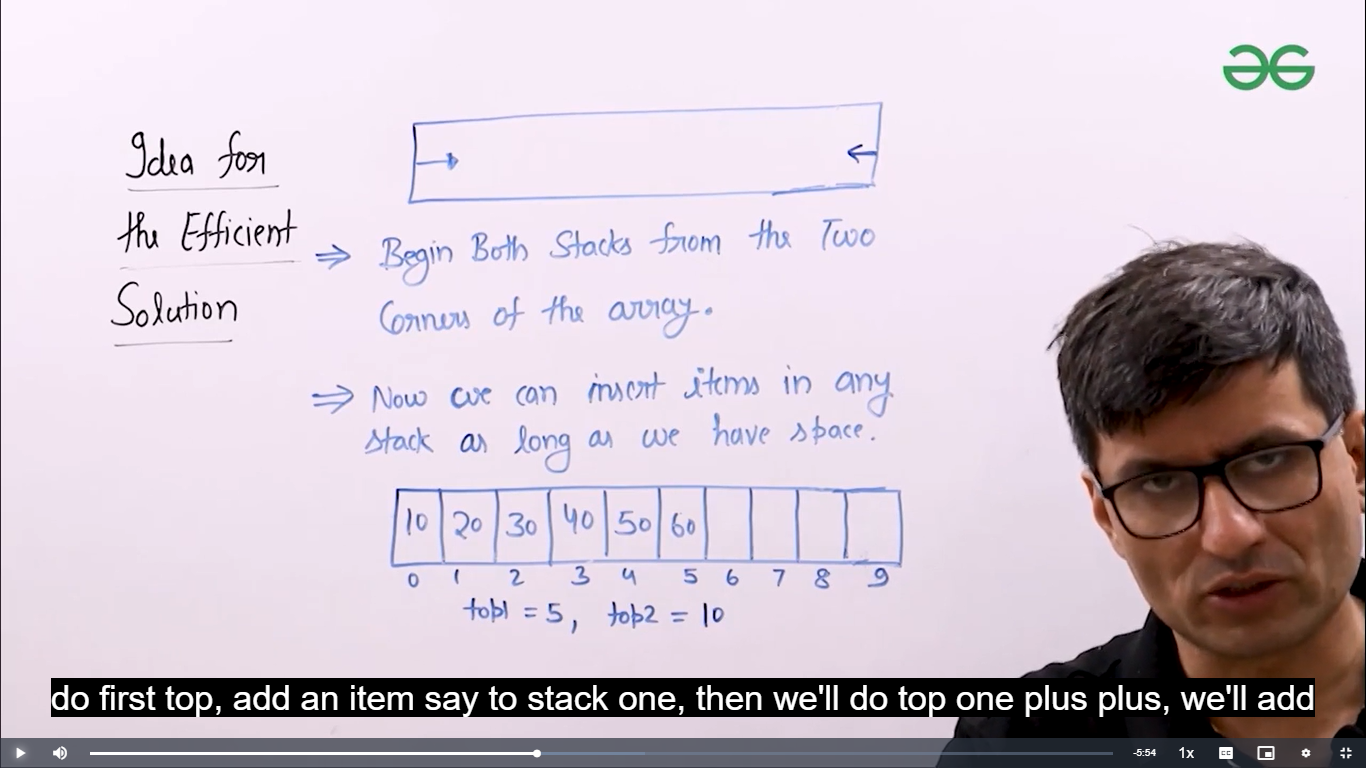 Idea for
the Efficient
Solution
⇒ Begin Both Stacks from the Two
Corners of the array.
⇒ Now we can insert items in any
stack as long as we have space.
10 20 30 40 50 60
0 1 2 3 4 5 6 7 8 9
top1 = 5, top2 = 10
do first top, add an item say to stack one, then we'll do top one plus plus, we'll add
-5:54
1x
CC